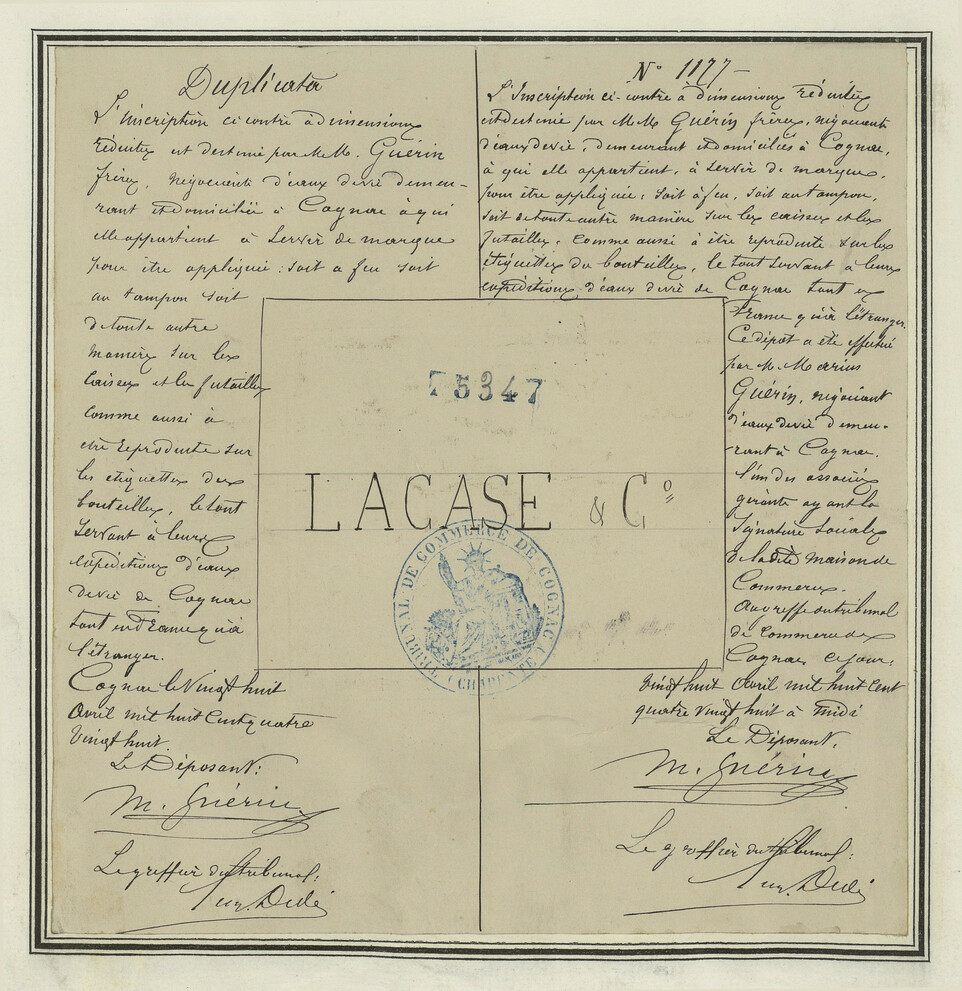 Duplicata
L'inscription ci contre à dimensions
réduites est destinée par M.M. Guérin
frères, négociants d'eaux de vie demeu-
rant et domiciliés à Cognac à qui
elle appartient à servir de marque
pour être appliquée : soit à feu soit
au tampon soit
de toute autre
manière sur les
caisses et les futailles
comme aussi à
être reproduite sur
les étiquettes des
bouteilles, le tout
servant à leurs
expéditions d'eaux
de vie de Cognac
tant en France qu'à
l'étranger.
Cognac le vingt huit
Avril mil huit cent quatre
vingt huit.
Le Déposant :
M. Guérin
Le greffier du tribunal :
Dulé
N° 1177 -
L'Inscription ci-contre à dimensions réduites
est destinée par M.M. Guérin frères, négociants
d'eaux de vie, demeurant et domiciliés à Cognac,
à qui elle appartient, à servir de marque,
pour être appliquée : soit à feu, soit au tampon,
soit de toute autre manière sur les caisses et les
futailles, comme aussi à être reproduite sur les
étiquettes du bouteilles, le tout servant à leurs
expéditions d'eaux de vie de Cognac tant en
France qu'à l'étranger.
Ce dépôt a été effectué
par M. Marius
Guérin, négociant
d'eaux de vie demeu-
rant à Cognac.
l'un des associés
gérants ayant la
signature sociale
de la dite maison de
Commerce.
Au greffe du tribunal
de Commerce de
Cognac ce jour,
vingt huit Avril mil huit cent
quatre vingt huit à midi
Le Déposant,
M. Guérin
Le greffier du tribunal :
Dulé
75347
LACASE & Cº
TRIBUNAL DE COMMERCE DE COGNAC
(CHARENTE)